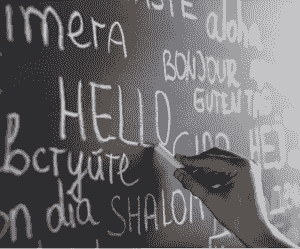 imeRA
ASTE
aloha
BONJOUR
GUTEN TA
HELLO
CIAO
HEJ
вствуйте
on dia
SHALO